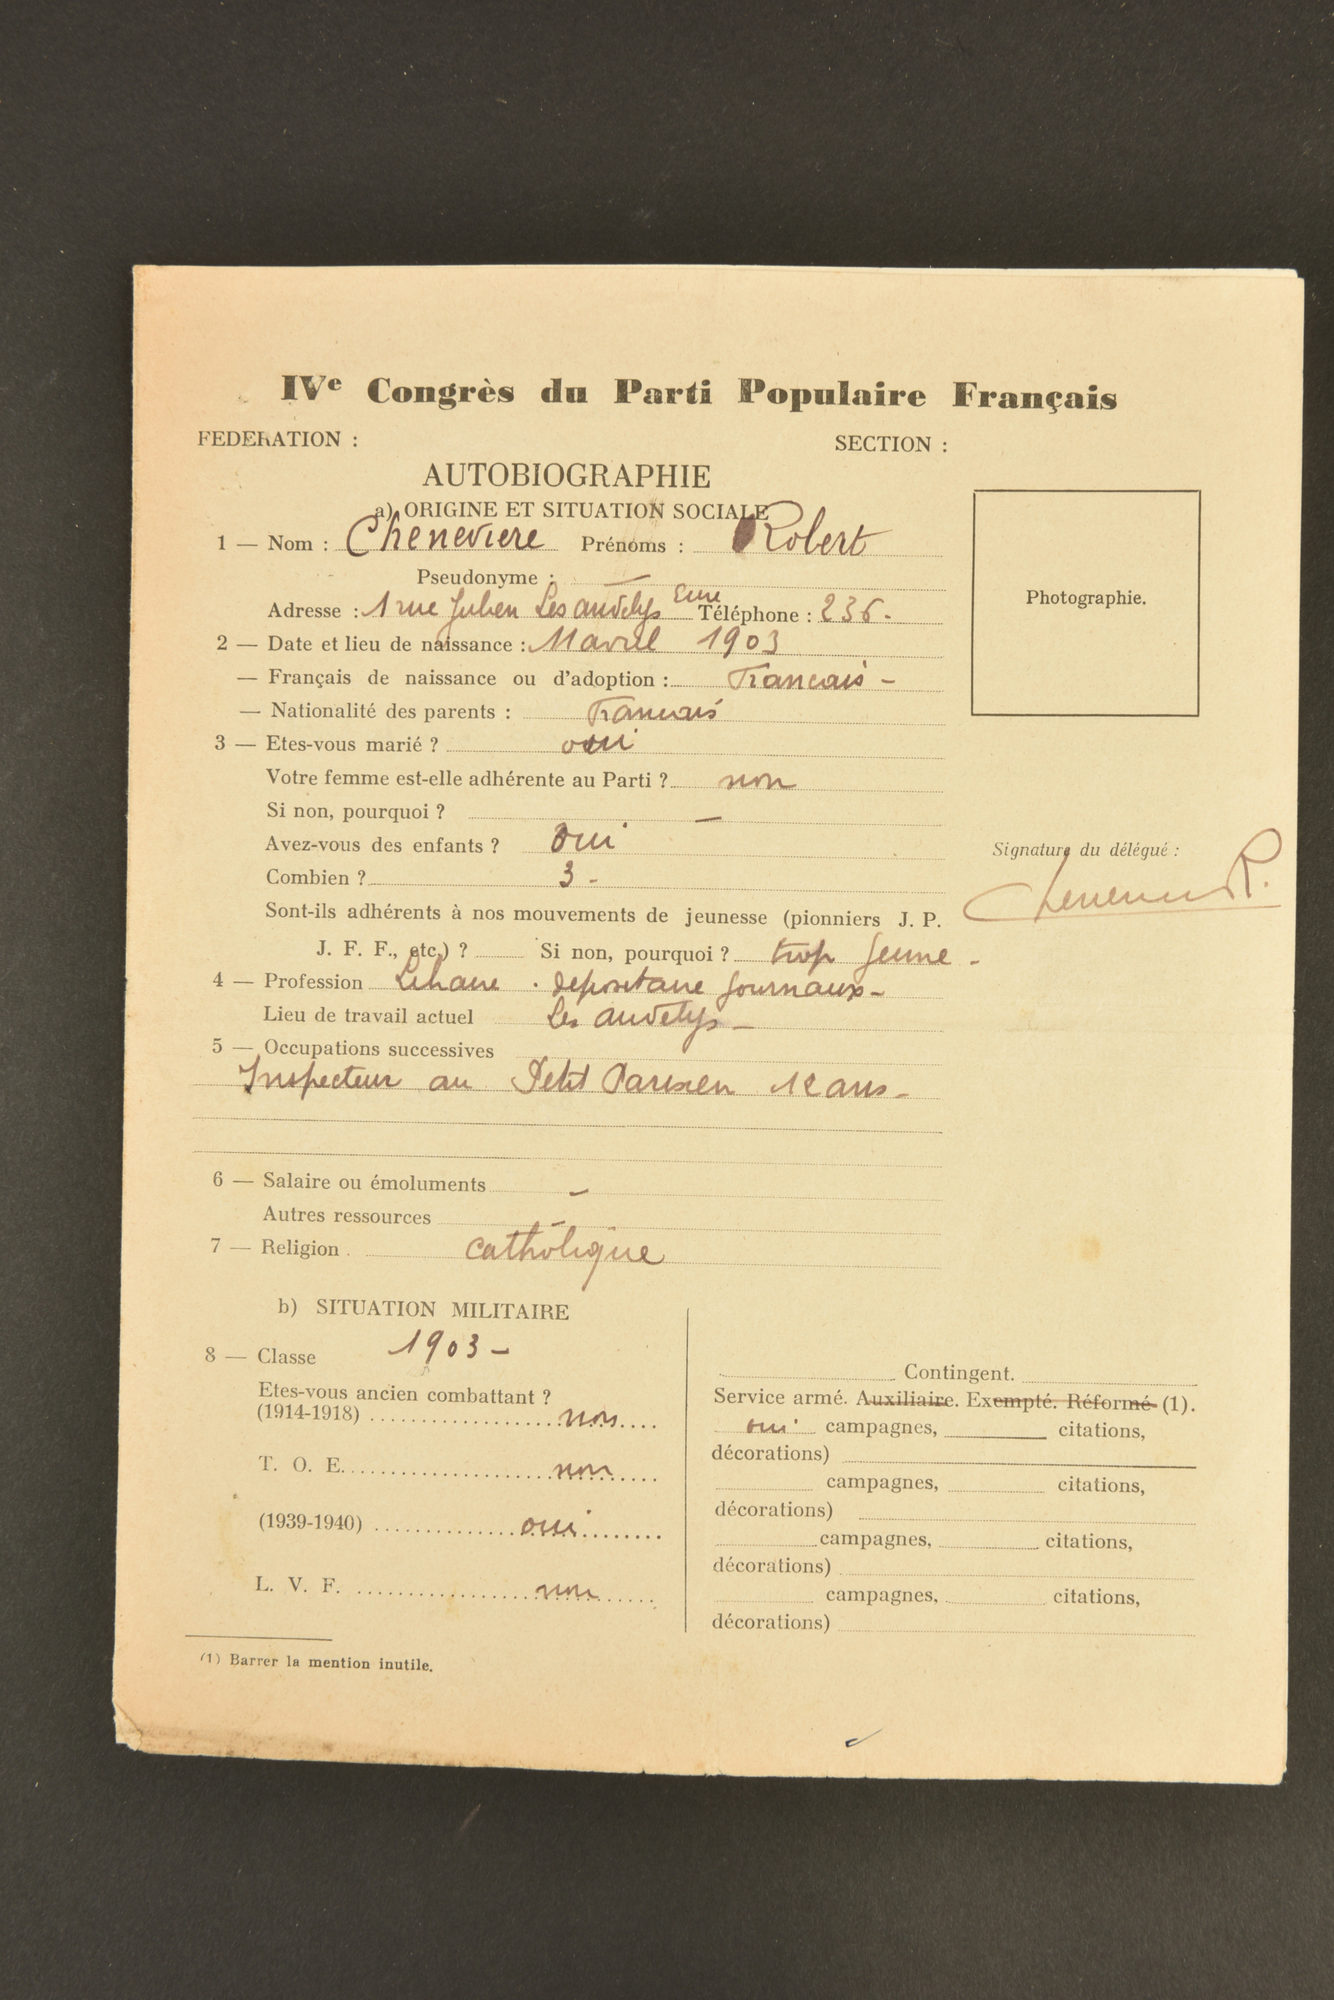 IVe Congrès du Parti Populaire Français
FEDERATION :
SECTION :
AUTOBIOGRAPHIE
a) ORIGINE ET SITUATION SOCIALE
1 — Nom : Cheneviere Prénoms : Robert
Pseudonyme : —
Adresse : 1 rue Julien Les andelys Eure Téléphone : 236.
2 — Date et lieu de naissance : 11 avril 1903
— Français de naissance ou d'adoption : Francais —
— Nationalité des parents : Francais
3 — Etes-vous marié ? oui
Votre femme est-elle adhérente au Parti ? non
Si non, pourquoi ? —
Avez-vous des enfants ? Oui
Combien ? 3 -
Sont-ils adhérents à nos mouvements de jeunesse (pionniers J. P.
J. F. F., etc.) ? Si non, pourquoi ? trop jeune -
4 — Profession Libraire . depositaire journaux -
Lieu de travail actuel Les andelys -
5 — Occupations successives
Inspecteur au Petit Parisien 12 ans -
6 — Salaire ou émoluments —
Autres ressources —
7 — Religion catholique
Photographie.
Signature du délégué :
Cheneviere R.
b) SITUATION MILITAIRE
8 — Classe 1903 -
Etes-vous ancien combattant ?
(1914-1918) .................... non ....
T. O. E. .................... non .....
(1939-1940) ............... oui ........
L. V. F. .................. non ......
Contingent.
Service armé. Auxiliaire. Exempté. Réformé (1).
oui campagnes, citations,
décorations)
campagnes, citations,
décorations)
campagnes, citations,
décorations)
campagnes, citations,
décorations)
(1) Barrer la mention inutile.